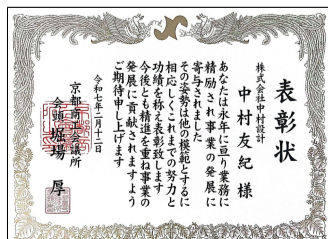 表彰状
株式会社中村設計
中村友紀 様
あなたは永年に亘り業務に
精励され事業の発展に
寄与されました
その姿勢は他の模範とするに
相応しくこれまでの努力と
功績を称え表彰致します
今後とも精進を重ね事業の
発展に貢献されますよう
ご期待申し上げます
令和七年二月十二日
京都商工会議所
会頭 堀場 厚